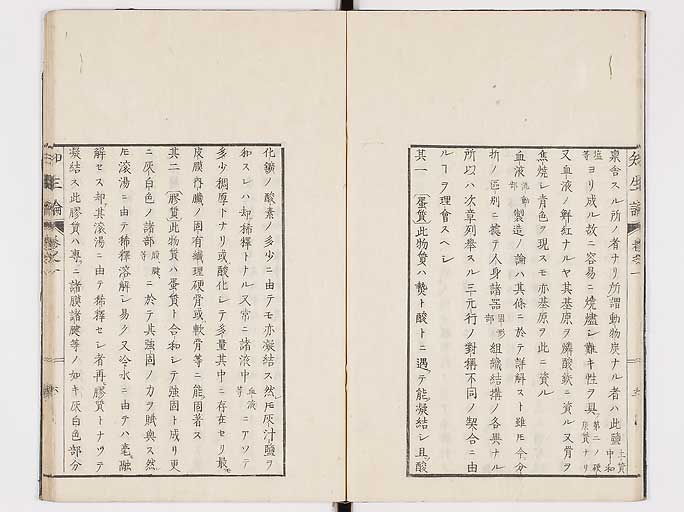 知生論 卷之一
稟舎スル所ノ者ナリ所謂動物炭ナル者ハ此鹽土質中和
塩等ヨリ成ル故ニ容易ニ燒燼シ難キ性ヲ具第二ノ硬炭質ナリ
又血液ノ鮮紅ナルヤ其基原ヲ燐酸鐵ニ資ル又骨ヲ
焦燒シ青色ヲ現スモ亦基原ヲ此ニ資ル
血液流動部製造ノ論ハ其條ニ於テ詳解スト雖モ今分
折ノ區別ニ據テ人身諸器固形部組織結搆ノ各異ナル
所以ハ次章列舉スル三元行ノ對稱不同ノ契合ニ由
ルヿヲ理會スヘシ
其一蛋質此物質ハ𤍠ト酸トニ遇テ能凝結シ且酸
化鑛ノ酸素ノ多少ニ由テモ亦凝結ス然𪜈灰汁鹽ヲ
和スレハ却稀釋トナル又常ニ諸液中血液等ニアツテ
多少稠厚トナリ或酸化シテ多量其中ニ存在セリ最
皮膜內臟ノ固有纖理硬骨或軟骨等ニ能固著ス
其二膠質此物質ハ蛋質ト合和シテ強固ト成リ更
ニ灰白色ノ諸部膜腱等ニ於テ其強固ノ力ヲ賦與ス然
𪜈滾湯ニ由テ稀釋溶解シ易ク又冷水ニ由テハ毫融
解セス却其滾湯ニ由テ稀釋セシ者再膠質トナツテ
凝結ス此膠質ハ專ニ諸膜諸腱等ノ如キ灰白色部分
知生論 卷之一 六